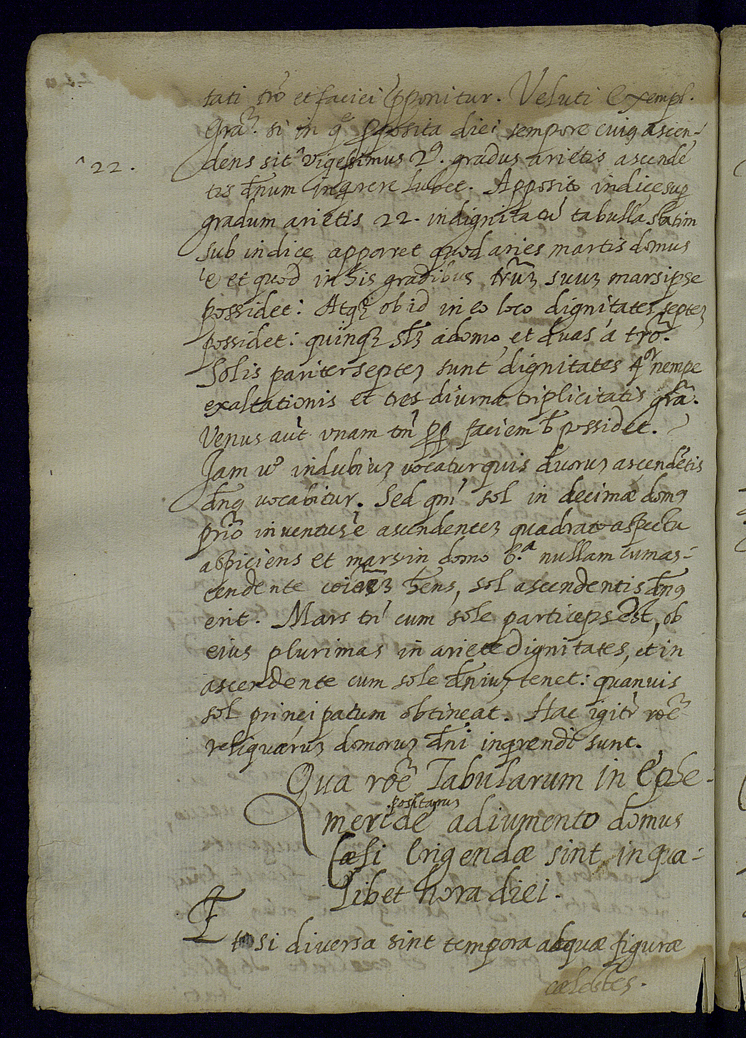 tati trō et faciei ꝓponitur. Veluti Exempl.
grā. si in q̄ ꝓposita diei tempore cuiꝯ ascen-
22.
dens sit vigesimus 2ꝯ. gradus arietis ascendē
tis dñum inqrere lubet. Apposito indice sup
gradum arietis 22. in dignitatū tabulla statim
sub indice apparet quod aries martis domus
ē et quod in his gradibus, trūz suuz mars ipse
possidet: Atqz ob id in eo loco dignitates septez
possidet: quinqz a domo, et duas á trō.
Solis pariter septez sunt dignitates 4ꝛ nempe
exaltationis et tres diurnæ triplicitatis grā.
Venus aūt vnam tñ faciem possidet.
Jam in dubiuz vocatur quis duoruz ascendētis
dñꝯ vocabitur. Sed qm̄ sol in decimæ domꝯ
prīo inventus ē ascendentez quadrato aspectu
aspiciens et mars in domo 6.ª nullam cum as-
cendente hēns, sol ascendentis dñꝯ
erit. Mars tñ cum sole particeps est, ob
eius plurimas in ariete dignitates, et in
ascendente cum sole dñiuz tenet: quanuis
sol principatum obtineat. Hac igitr̄ rōē
reliquaruz domoruz dñi inqrendi sunt.
Qua rōē Tabularum in Ephe-
positarum
meride adiumento domus
Cæli Erigendæ sint in qua-
libet hora diei.
Et si diversa sint tempora atquæ figuræ
cælestes.